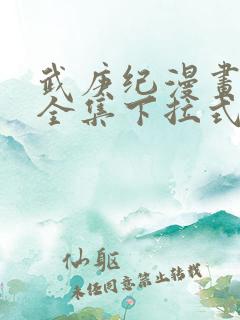 武庚纪漫畫
全集下拉式
仙躯
未经同意禁止转载